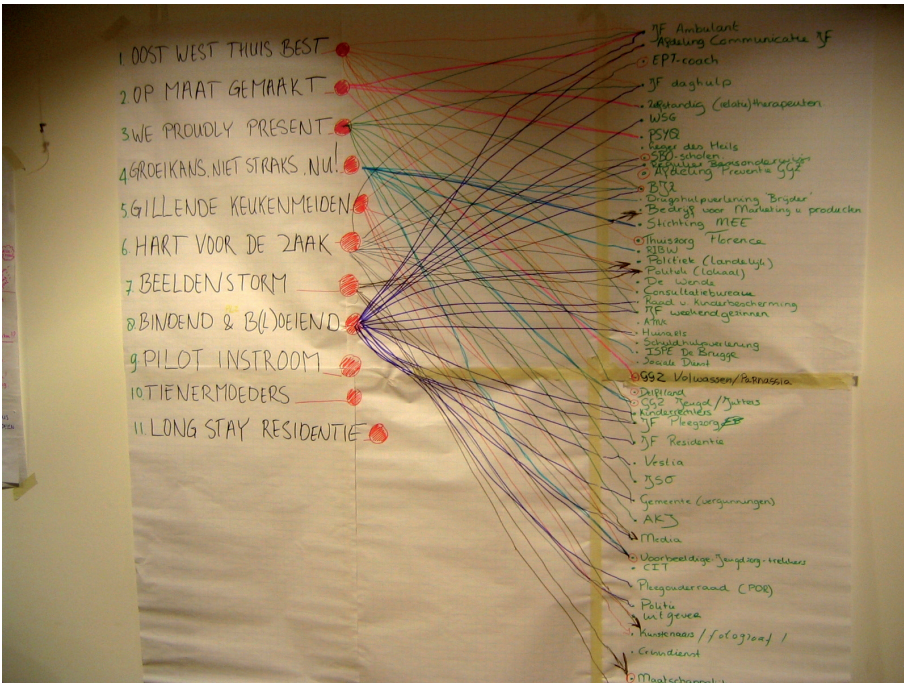 1. OOST WEST THUIS BEST
2 OP MAAT GEMAAKT
3 WE PROUDLY PRESENT
4 GROEIKANS. NIET STRAKS, NU!
5 GILLENDE KEUKENMEIDEN
6 HART VOOR DE ZAAK
7 BEELDENSTORM
8 BINDEND & B(L)OEIEND
9 PILOT INSTROOM
10 TIENERMOEDERS
11. LONG STAY RESIDENTIE
JF Ambulant
Afdeling Communicatie JF
EPT-coach
JF daghulp
WSG
PSYQ
Leger des Heils
SBO-scholen
Afdeling Preventie GGZ
BJZ
Drugshulpverlening 'Brijder'
Bedrijf voor Marketing v producten
Stichting MEE
Thuiszorg Florence
RIBW
Politiek (landelijk)
Politiek (lokaal)
De Wende
Consultatiebureau
Raad v. Kinderbescherming
JF weekendgezinnen
AMK
Humanitas
Schuldhulpverlening
ISPE De Brugge
Sociale Dienst
GGZ Volwassen/Parnassia
Delfland
GGZ Jeugd/Jutters
Kinderrechters
JF Pleegzorg
JF Residentie
Vestia
JSO
Gemeente (vergunningen)
AKJ
Media
Voorbeeldige Jeugdzorg-trekkers
CIT
Pleegouderraad (POR)
Politie
Uitgever
Kunstenaars / fotograaf /